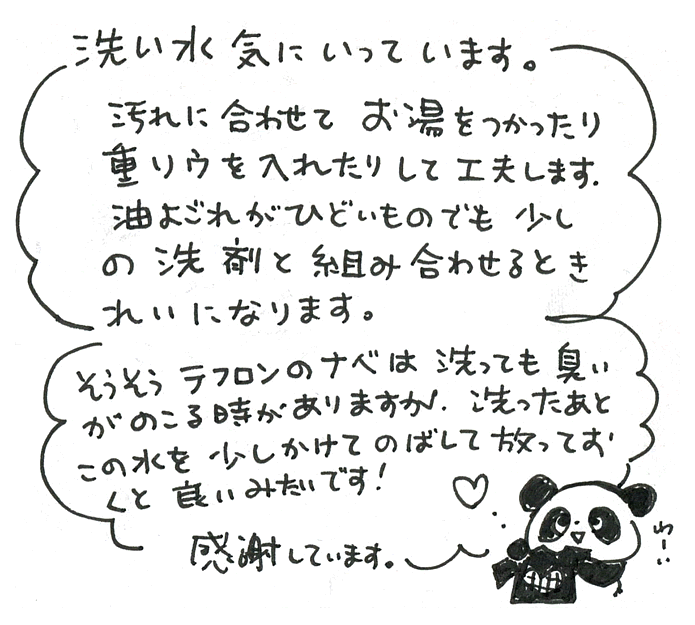 洗い水 気にいっています。
汚れに合わせて お湯をつかったり
重リウを入れたりして工夫します.
油よごれがひどいものでも 少し
の洗剤と組み合わせるとき
れいになります。
そうそう テフロンのナベは 洗っても臭い
がのこる時がありますが. 洗ったあと
この水を少しかけてのばして放ってお
くと良いみたいです!
感謝しています。
わーい